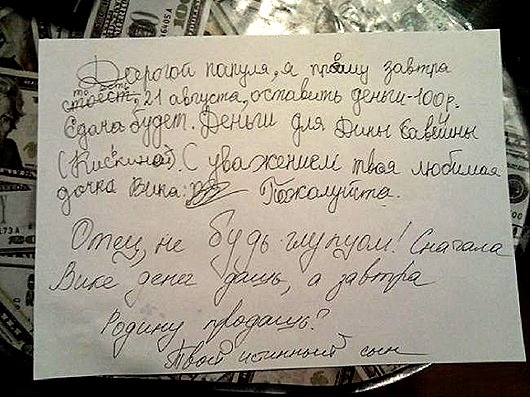 Дорогой папуля, я прошу завтра
то есть
стоест, 21 августа, оставить деньги-100р.
Сдача будет. Деньги для Дины Савейны
(Кискиной). С уважением твоя любимая
дочка Вика. Пожалуйста.
Отец, не будь глупцом! Сначала
Вике денег дашь, а завтра
Родину продашь?
Твой истинный сын